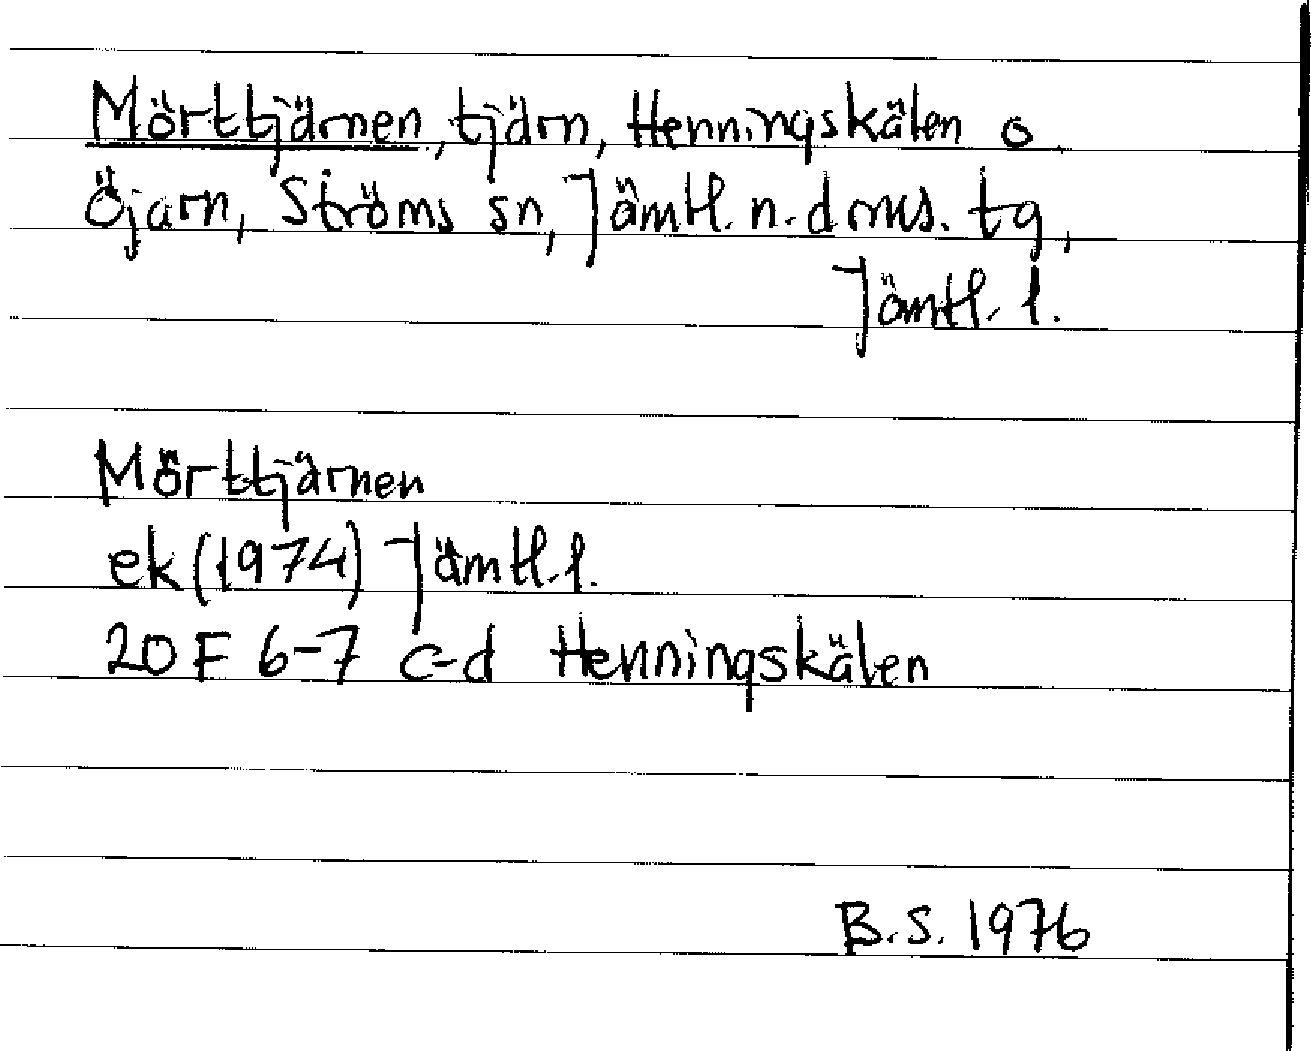 Mörttjärnen, tjärn, Henningskälen o.
Öjarn, Ströms sn, Jämtl. n. doms. tg,
Jämtl. l.
Mörttjärnen
ek (1974) Jämtl. l.
20 F 6-7 c-d Henningskälen
B.S. 1976